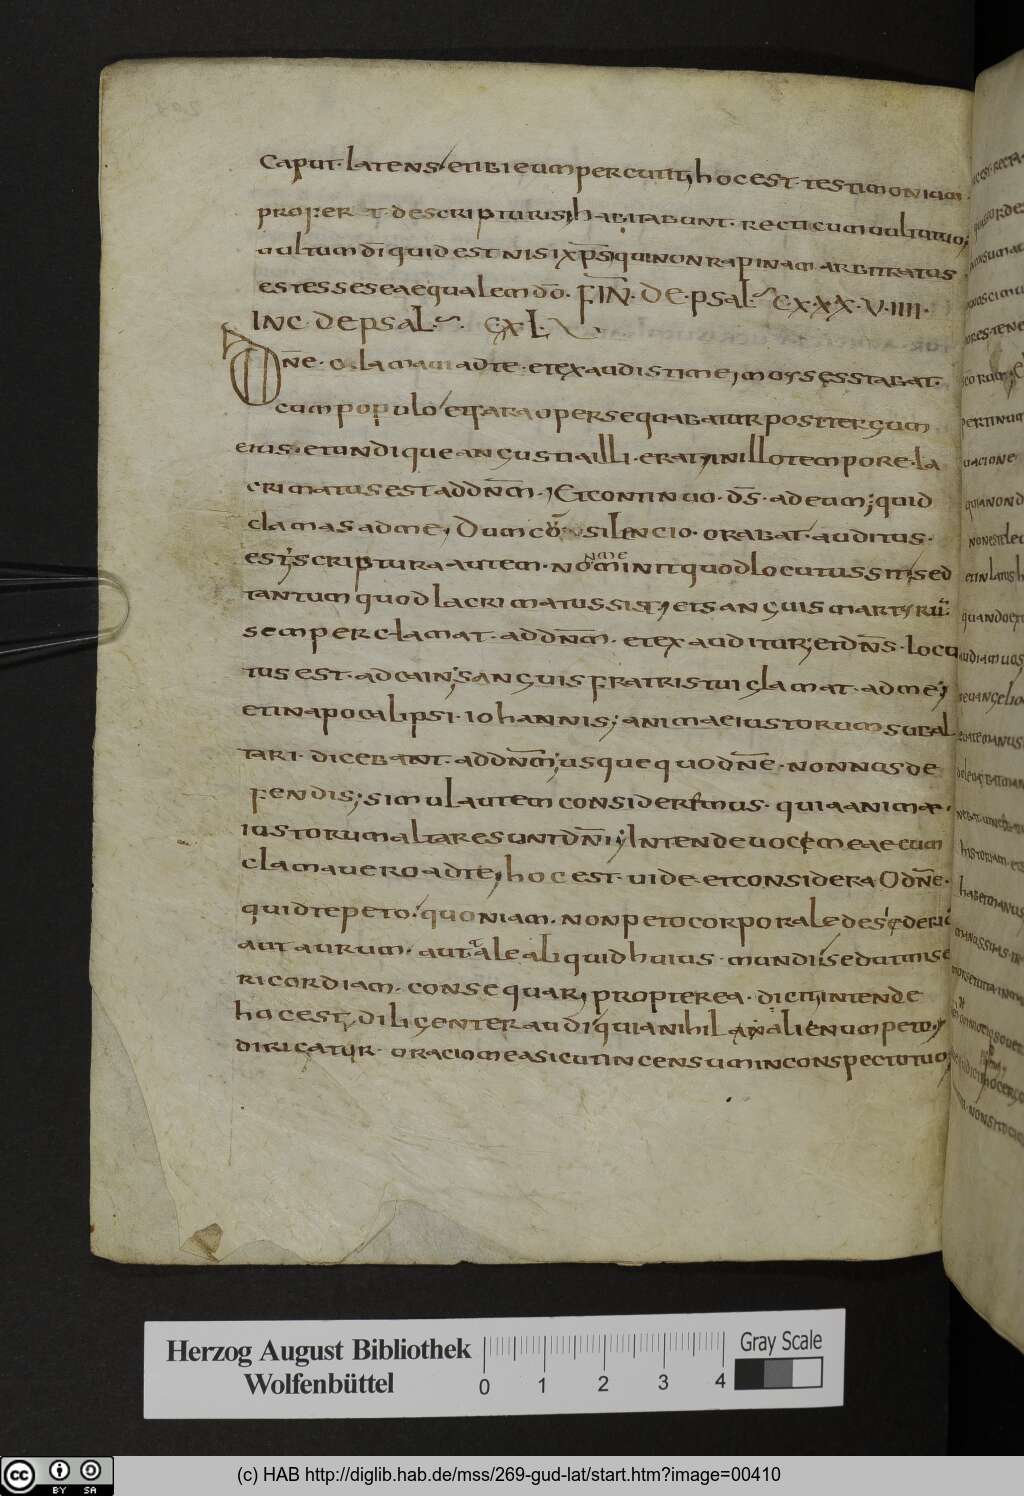 caput· latens· et ibi eum percutit; hoc est· testimonium·
profer t· de scripturis; habitabunt· recti cum uultu tuo;
uultum di quid est nisi xps; qui non rapinam arbitratus
est esse se aequalem do· FIN· DE· psal· CXXX·V·IIII·
INC· DE psal· CXL·
Dne· clamaui ad te· et exaudisti me; moyses stabat·
cum populo et farao persequabatur post tergum
eius· et undique angustia illi· erat; in illo tempore· la
crimatus est ad dnm·; Et continuo· ds· ad eum; quid
clamas ad me; Dum cor silencio· orabat· auditus·
est; scriptura autem· non nit quod locutus sit; sed
tantum quod lacrimatus sit; et sanguis martyrū·
semper clamat· ad dnm· et exauditur; et dns· locu
tus est· ad cain; sanguis fratris tui clamat· ad me;
et in apocalipsi· iohannis; animae iustorum sub al
tari· dicebant· ad dnm; usque quo dne· non nus de
fendis; simul autem consideremus· quia animæ·
iustorum altare sunt dni; Intende uocem eae cum
clamauero ad te; hoc est· uide et considera O dne·
quid te peto· quoniam· non peto corporale desideriū
aut aurum· aut tale aliquid huius· mundi; sed ut mise
ricordiam· consequar; propterea· dicit; intende
hoc est; diligenter audi quia nihil alienum peto·
dirigatur· oracio mea sicut incensum in conspectu tuo;
Herzog August Bibliothek
Wolfenbüttel
0 1 2 3 4
Gray Scale
cc BY SA
(c) HAB http://diglib.hab.de/mss/269-gud-lat/start.htm?image=00410